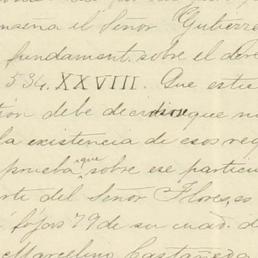 el Señor Gutierre
fundament sobre el dere
534. XXVIII. Que este
ción debe decidirse que no
la existencia de esos reg
prueba que sobre ese particu
rte del Señor Flores, es
fojas 79 de su cuad. d
Marcelino Castañeda